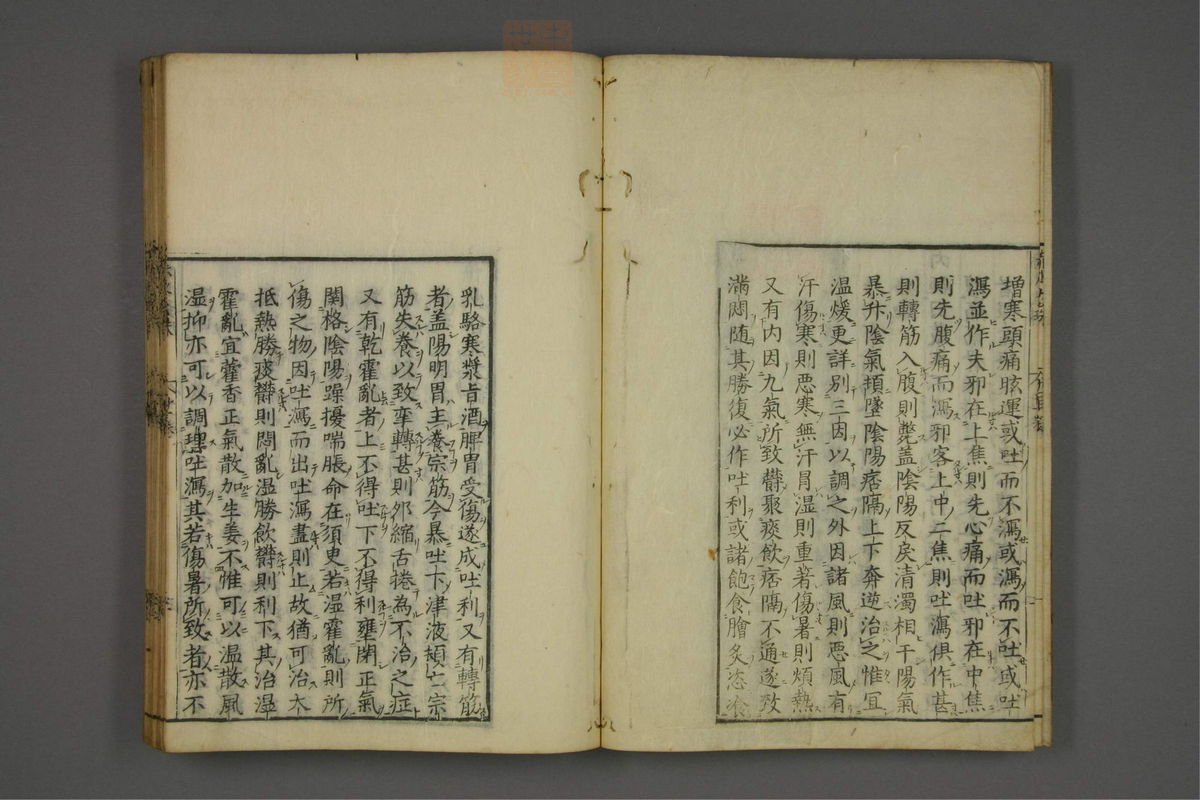 増寒頭痛眩運或吐而不瀉或瀉而不吐或吐
瀉並作夫邪在上焦則先心痛而吐邪在中焦
則先腹痛而瀉邪客上中二焦則吐瀉俱作甚
則轉筋入腹則斃盖陰陽反戾清濁相干陽氣
暴升陰氣頓墜陰陽痞隔上下奔逆治之惟冝
温煖更詳別三因以調之外因諸風則悪風有
汗傷寒則悪寒無汗冐湿則重著傷暑則煩熱
又有内因九氣所致欝聚痰飲痞隔不通遂致
滿悶随其勝復必作吐利或諸飽食膾炙恣飡
乳駱寒漿旨酒脾胃受傷遂成吐利又有轉筋
者盖陽明胃主養宗筋今暴吐下津液頓亡宗
筋失養以致孿轉甚則夘縮舌捲為不治之症
又有乾霍亂者上不得吐下不得利壅閉正氣
関格陰陽躁擾喘脹命在須臾若湿霍亂則所
傷之物因吐瀉而出吐瀉盡則止故猶可治大
抵熱勝痰欝則悶亂湿勝飲欝則利下其治湿
霍亂宜藿香正氣散加生姜不惟可以温散風
湿抑亦可以調理吐瀉其若傷暑所致者亦不